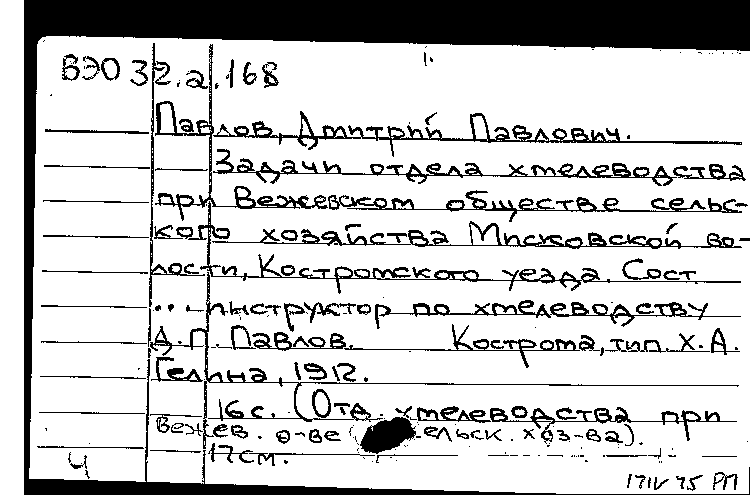 ВЭО 32.2.168
Павлов, Дмитрий Павлович.
Задачи отдела хмелеводства
при Вежевском обществе сельс-
кого хозяйства Мисковской во-
лости, Костромского уезда. Сост.
... инструктор по хмелеводству
Д.П. Павлов. Кострома, тип. Х.А.
Гелина, 1912.
16 с. (Отд. хмелеводства при
Вежев. о-ве ( ельск. хоз-ва).
17 см.
Ч
171V 75 РП